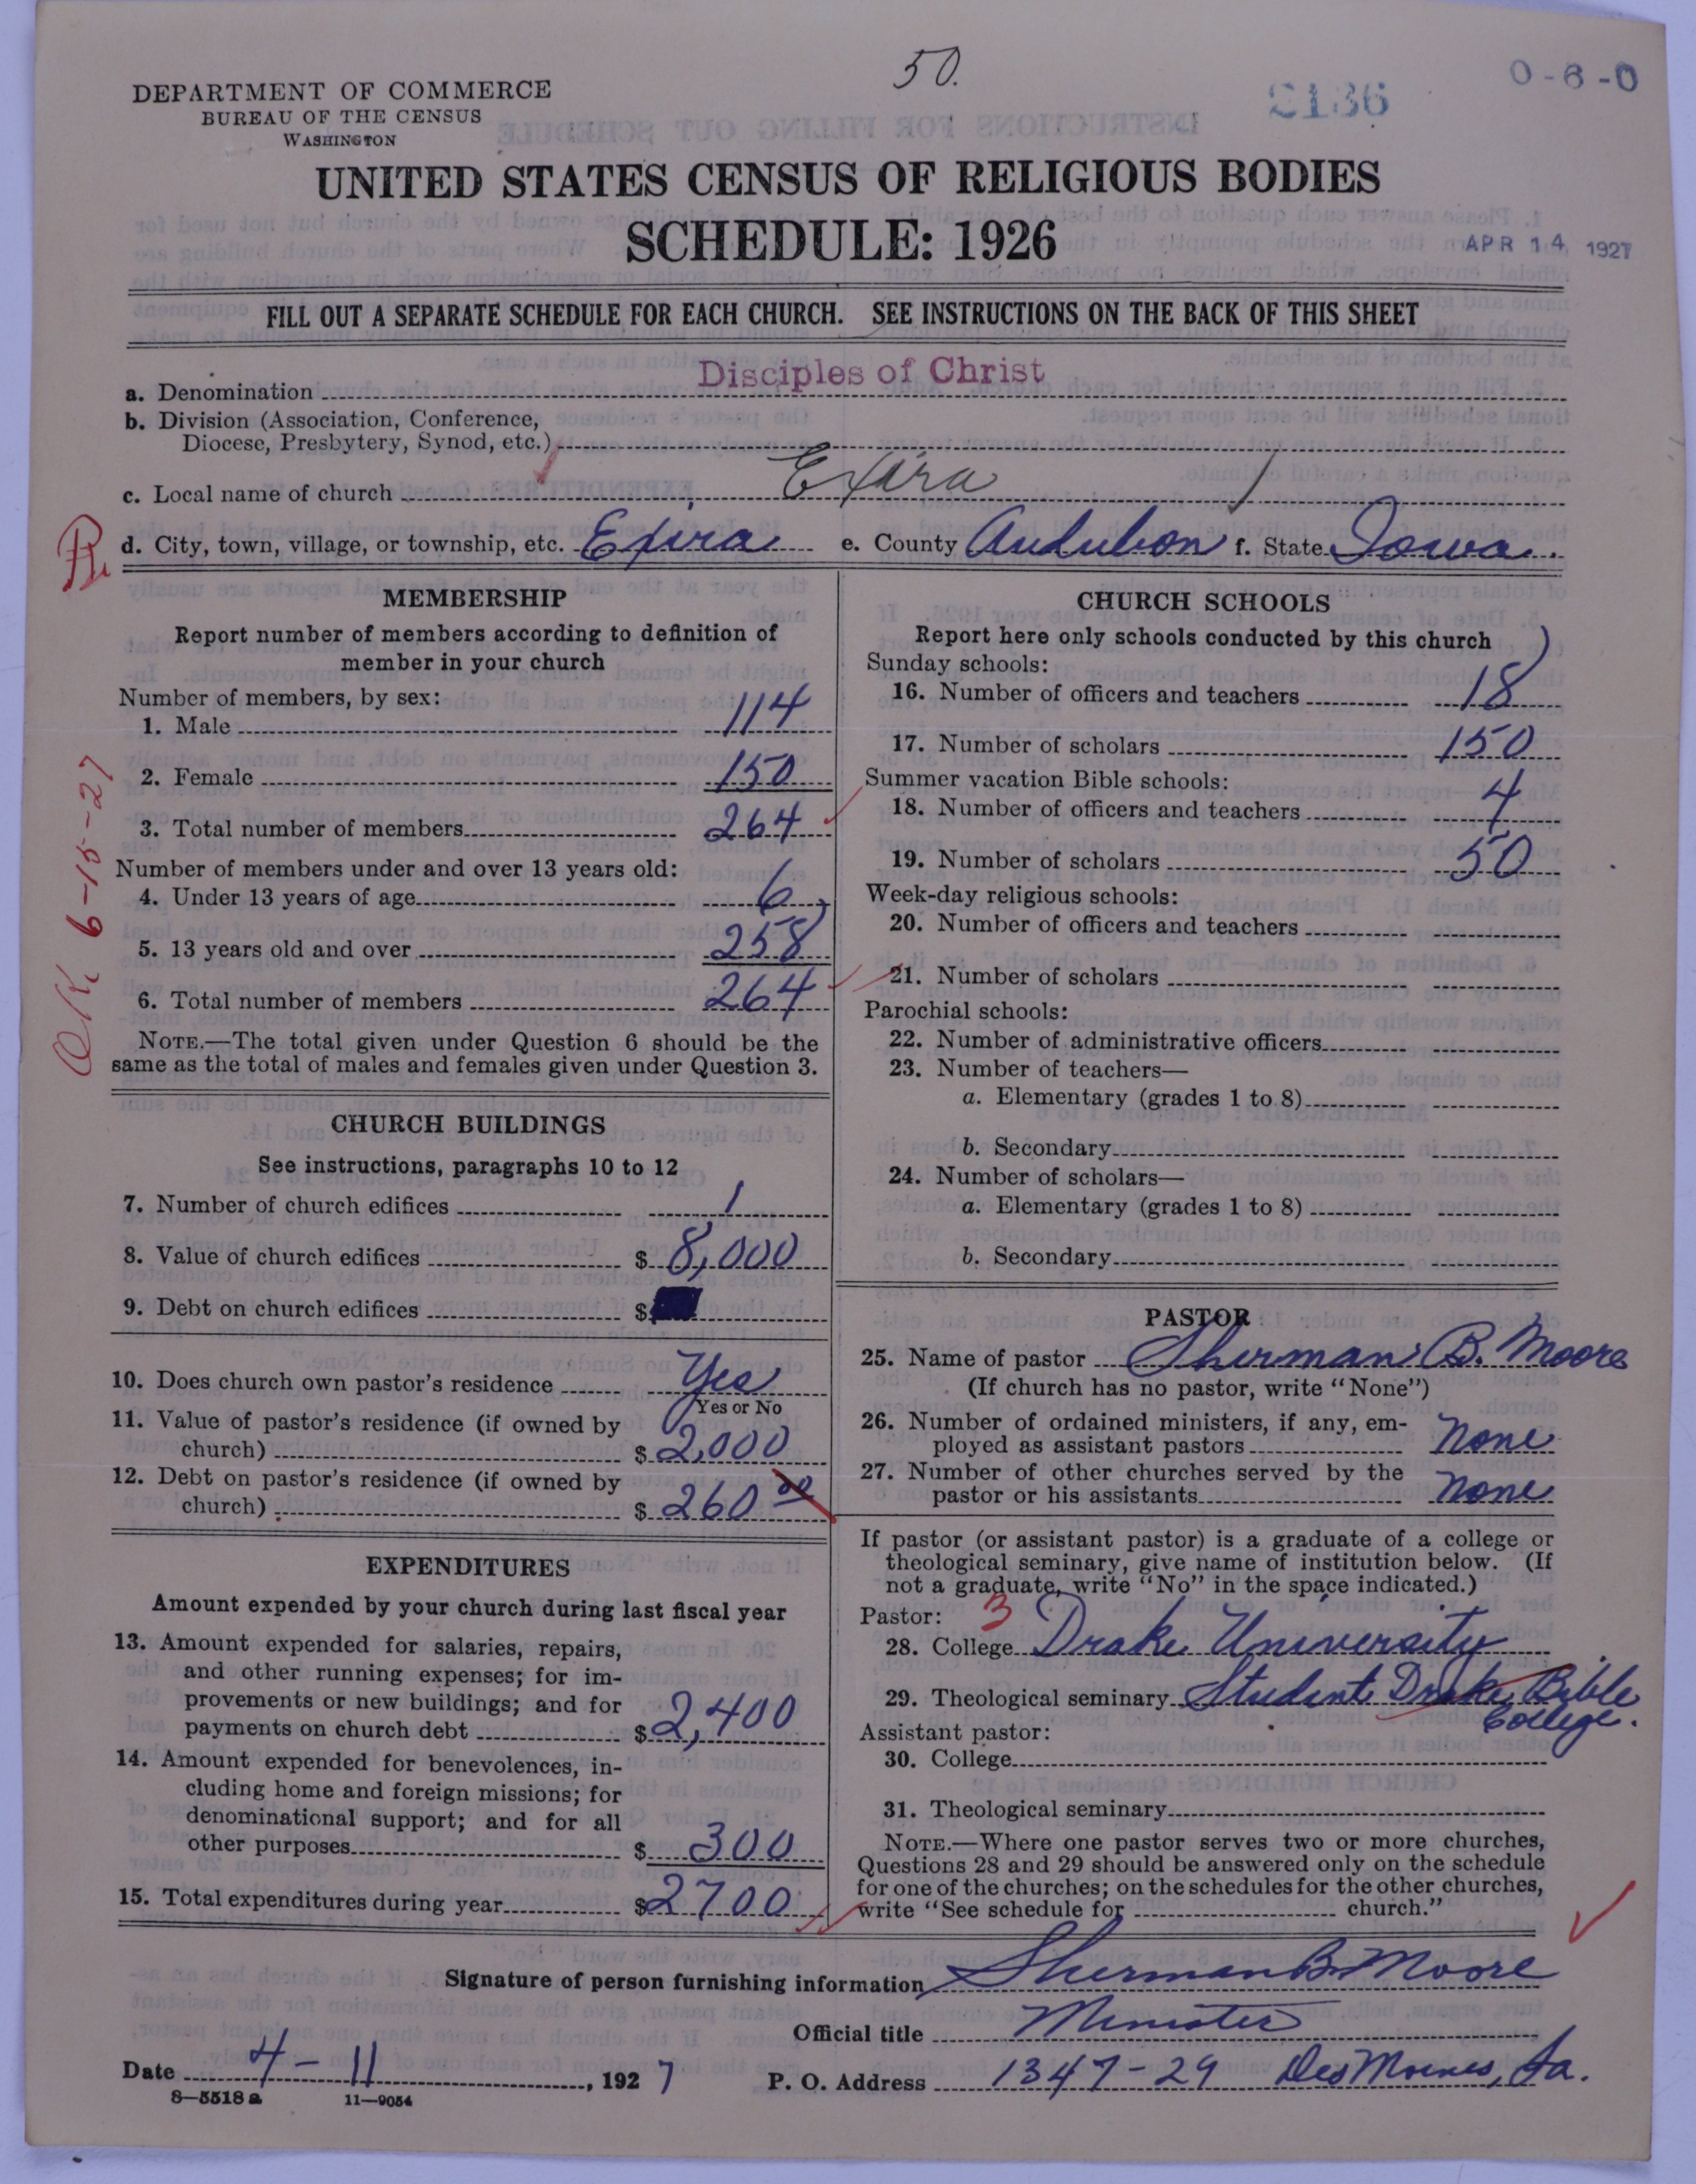 50.
2136
0-6-0
DEPARTMENT OF COMMERCE
BUREAU OF THE CENSUS
WASHINGTON
UNITED STATES CENSUS OF RELIGIOUS BODIES
SCHEDULE: 1926
APR 14 1927
FILL OUT A SEPARATE SCHEDULE FOR EACH CHURCH. SEE INSTRUCTIONS ON THE BACK OF THIS SHEET
a. Denomination Disciples of Christ
b. Division (Association, Conference,
Diocese, Presbytery, Synod, etc.)
c. Local name of church Exira
d. City, town, village, or township, etc. Exira e. County Audubon f. State Iowa
OK 6-15-27
MEMBERSHIP
Report number of members according to definition of
member in your church
Number of members, by sex:
1. Male 114
2. Female 150
3. Total number of members 264
Number of members under and over 13 years old:
4. Under 13 years of age 6
5. 13 years old and over 258
6. Total number of members 264
NOTE.—The total given under Question 6 should be the
same as the total of males and females given under Question 3.
CHURCH BUILDINGS
See instructions, paragraphs 10 to 12
7. Number of church edifices 1
8. Value of church edifices $ 8,000
9. Debt on church edifices $
10. Does church own pastor's residence Yes
Yes or No
11. Value of pastor's residence (if owned by
church) $ 2,000
12. Debt on pastor's residence (if owned by
church) $ 260 00
EXPENDITURES
Amount expended by your church during last fiscal year
13. Amount expended for salaries, repairs,
and other running expenses; for im-
provements or new buildings; and for
payments on church debt $ 2,400
14. Amount expended for benevolences, in-
cluding home and foreign missions; for
denominational support; and for all
other purposes $ 300
15. Total expenditures during year $ 2700
CHURCH SCHOOLS
Report here only schools conducted by this church
Sunday schools:
16. Number of officers and teachers 18
17. Number of scholars 150
Summer vacation Bible schools:
18. Number of officers and teachers 4
19. Number of scholars 50
Week-day religious schools:
20. Number of officers and teachers
21. Number of scholars
Parochial schools:
22. Number of administrative officers
23. Number of teachers—
a. Elementary (grades 1 to 8)
b. Secondary
24. Number of scholars—
a. Elementary (grades 1 to 8)
b. Secondary
PASTOR
25. Name of pastor Sherman B. Moore
(If church has no pastor, write "None")
26. Number of ordained ministers, if any, em-
ployed as assistant pastors None
27. Number of other churches served by the
pastor or his assistants None
If pastor (or assistant pastor) is a graduate of a college or
theological seminary, give name of institution below. (If
not a graduate, write "No" in the space indicated.)
Pastor: 3
28. College Drake University
29. Theological seminary Student Drake Bible
College.
Assistant pastor:
30. College
31. Theological seminary
NOTE.—Where one pastor serves two or more churches,
Questions 28 and 29 should be answered only on the schedule
for one of the churches; on the schedules for the other churches,
write "See schedule for church."
Signature of person furnishing information Sherman B Moore
Official title Minister
Date 4-11, 1927 P. O. Address 1347-29 Des Moines, Ia.
8-5518 a 11-9054